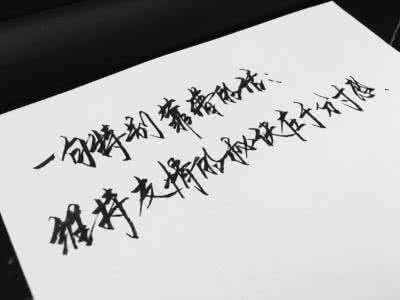 一句特别靠谱的话：
维持友情的秘诀在于分寸感．